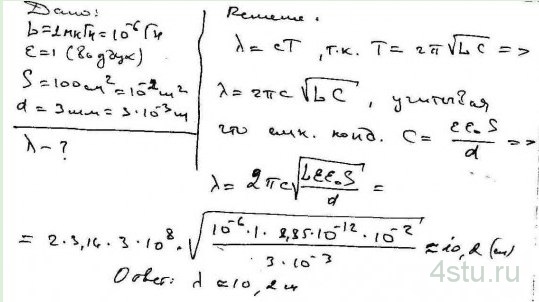 Дано:
L=1мкГн=10⁻⁶Гн
ε=1 (воздух)
S=100см²=10⁻²м²
d=3мм=3·10⁻³м
λ-?
Решение.
λ=cT, т.к. T=2π√LC =>
λ=2πc√LC, учитывая
что емк. конд. C= εε₀S/d =>
λ=2πc√(Lεε₀S/d) =
=2·3,14·3·10⁸·√(10⁻⁶·1·8,85·10⁻¹²·10⁻²/3·10⁻³) ≈10,2 (м)
Ответ: λ≈10,2м
4stu.ru